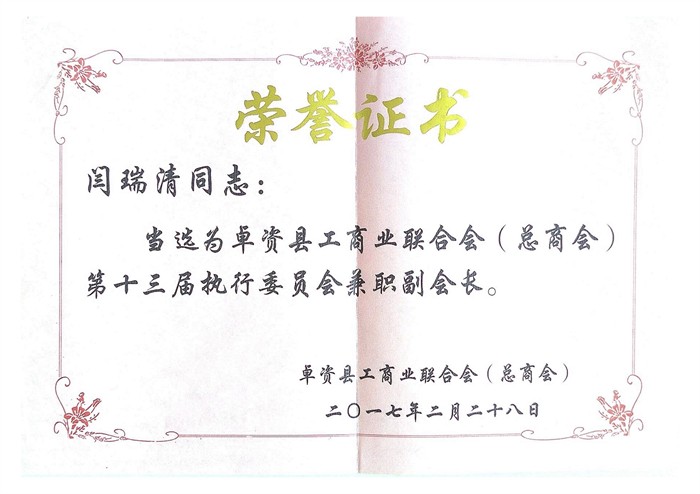 荣誉证书
闫瑞清同志：
当选为卓资县工商业联合会（总商会）
第十三届执行委员会兼职副会长。
卓资县工商业联合会（总商会）
二〇一七年二月二十八日